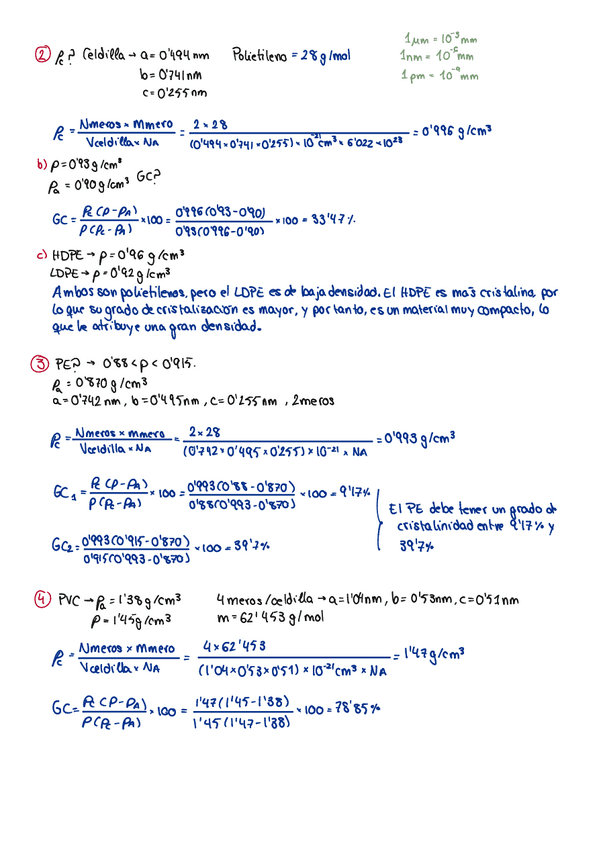 1μm = 10⁻³mm
1nm = 10⁻⁶mm
1pm = 10⁻⁹mm
② ρc? Celdilla → a = 0'494nm Polietileno = 28g/mol
b = 0'741nm
c = 0'255nm
ρc = Nmeros × Mmero / Vceldilla × NA = 2 × 28 / (0'494 × 0'741 × 0'255) × 10⁻²¹cm³ × 6'022 × 10²³ = 0'996 g/cm³
b) ρ = 0'93g/cm³
ρa = 0'90g/cm³ GC?
GC = ρc (ρ - ρA) / ρ(ρc - ρA) × 100 = 0'996(0'93 - 0'90) / 0'93(0'996 - 0'90) × 100 = 33'47%
c) HDPE → ρ = 0'96 g/cm³
LDPE → ρ = 0'92 g/cm³
Ambos son polietilenos, pero el LDPE es de baja densidad. El HDPE es más cristalina, por
lo que su grado de cristalización es mayor, y por tanto, es un material muy compacto, lo
que le atribuye una gran densidad.
③ PE? → 0'88 < ρ < 0'915.
ρa = 0'870 g/cm³
a = 0'742nm, b = 0'495nm, c = 0'255nm, 2meros
ρc = Nmeros × mmero / Vceldilla × NA = 2 × 28 / (0'742 × 0'495 × 0'255) × 10⁻²¹ × NA = 0'993 g/cm³
GC₁ = ρc (ρ - ρA) / ρ(ρc - ρA) × 100 = 0'993(0'88 - 0'870) / 0'88(0'993 - 0'870) × 100 = 9'17%
El PE debe tener un grado de
cristalinidad entre 9'17% y
39'7%
GC₂ = 0'993(0'915 - 0'870) / 0'915(0'993 - 0'870) × 100 = 39'7%
④ PVC → ρa = 1'38g/cm³ 4meros/celdilla → a = 1'04nm, b = 0'53nm, c = 0'51nm
ρ = 1'45g/cm³ m = 62'453g/mol
ρc = Nmeros × Mmero / Vceldilla × NA = 4 × 62'453 / (1'04 × 0'53 × 0'51) × 10⁻²¹cm³ × NA = 1'47g/cm³
GC = ρc (ρ - ρA) / ρ(ρc - ρA) × 100 = 1'47(1'45 - 1'38) / 1'45(1'47 - 1'38) × 100 = 78'85%